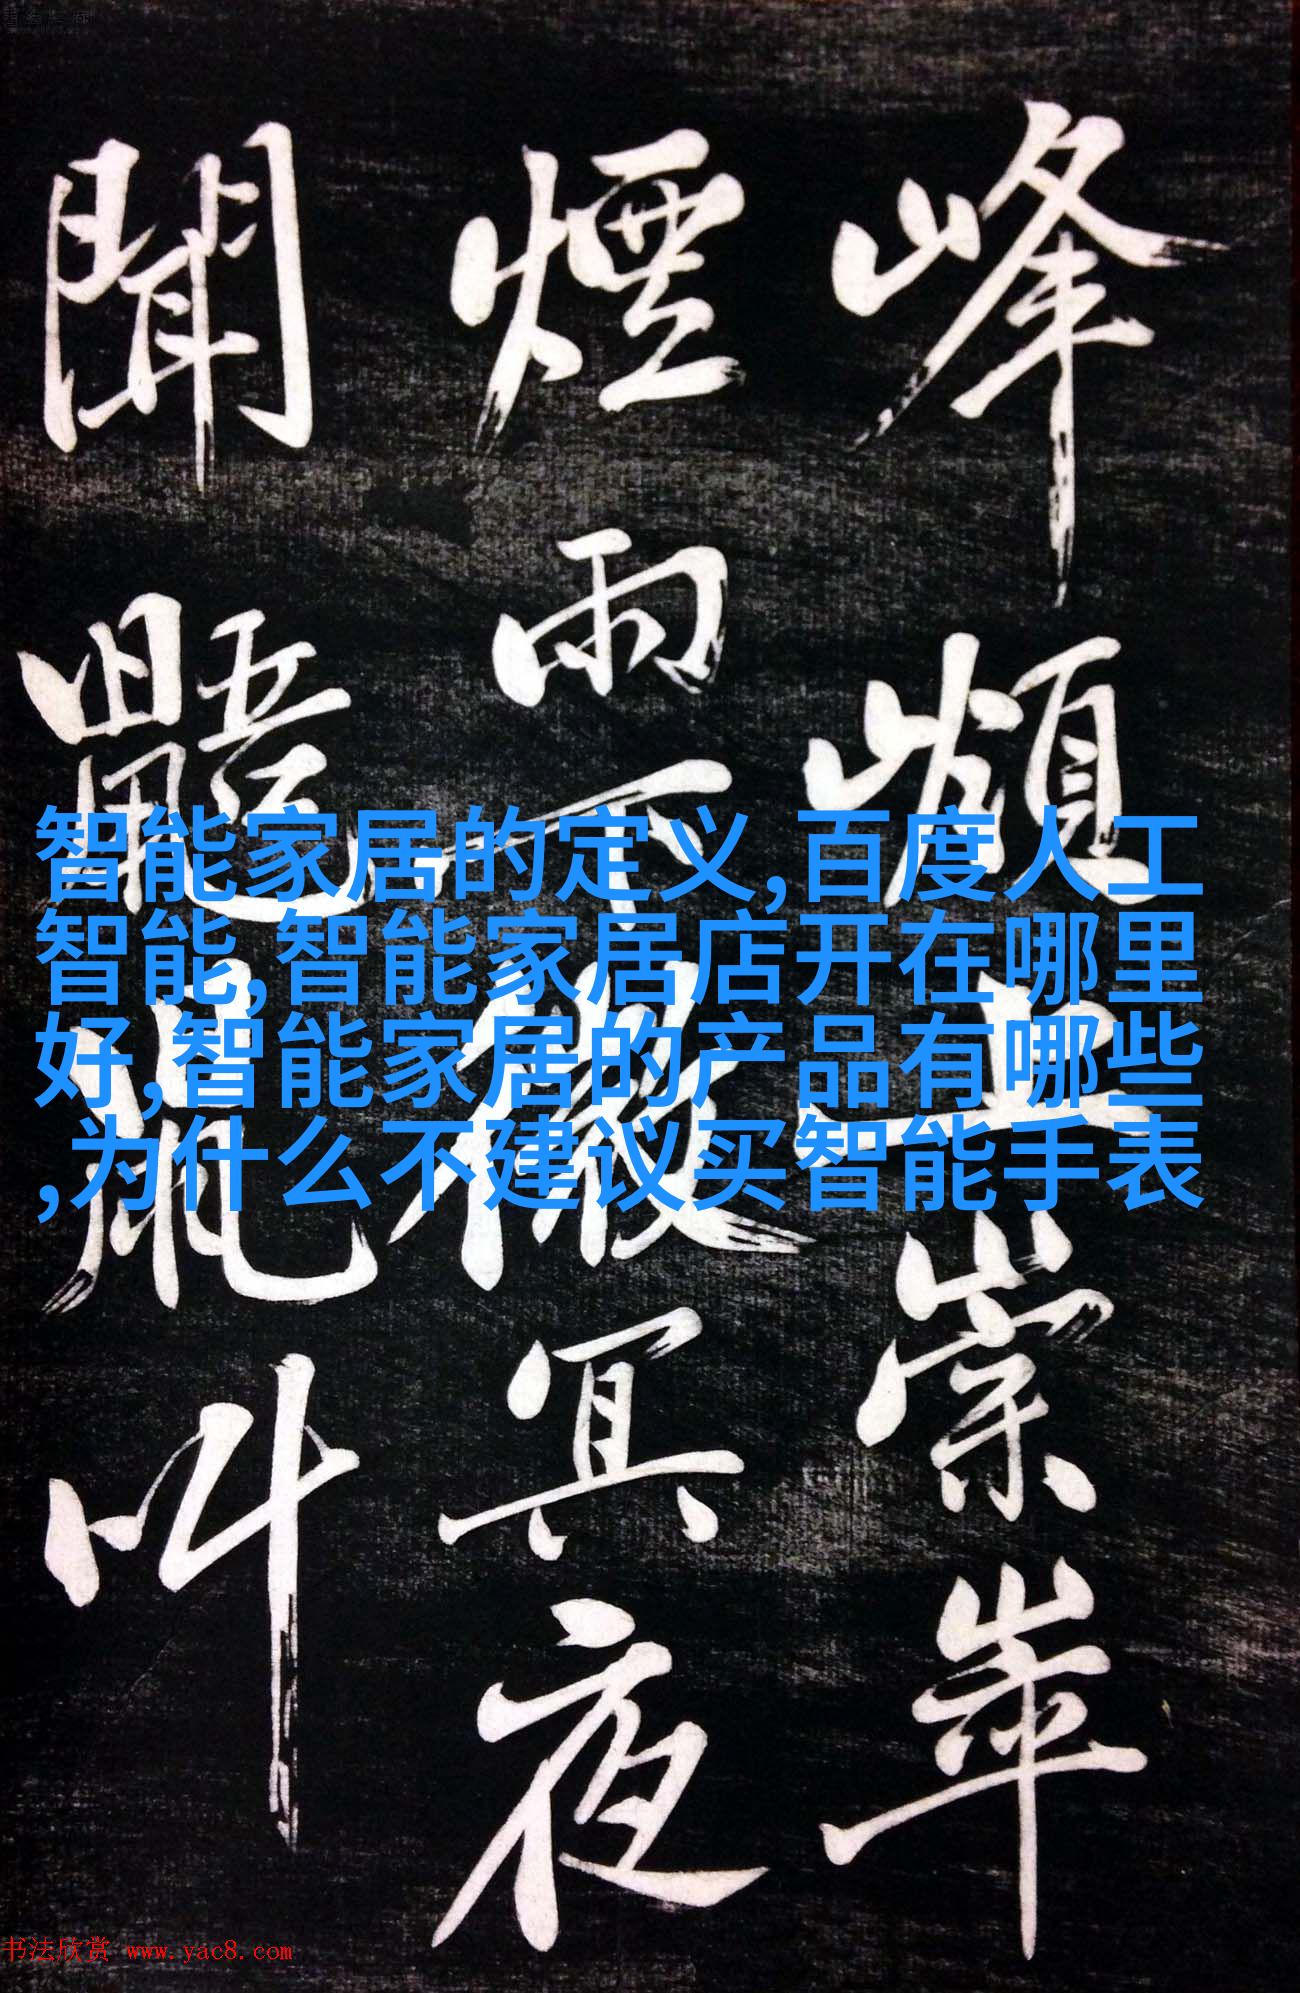 峰頔上崇崒
煙雨不徹冥夜
聞鼯鼠叫
智能家居的定义,百度人工
智能,智能家居店开在哪里
好,智能家居的产品有哪些
,为什么不建议买智能手表
书法欣赏 www.yac8.com